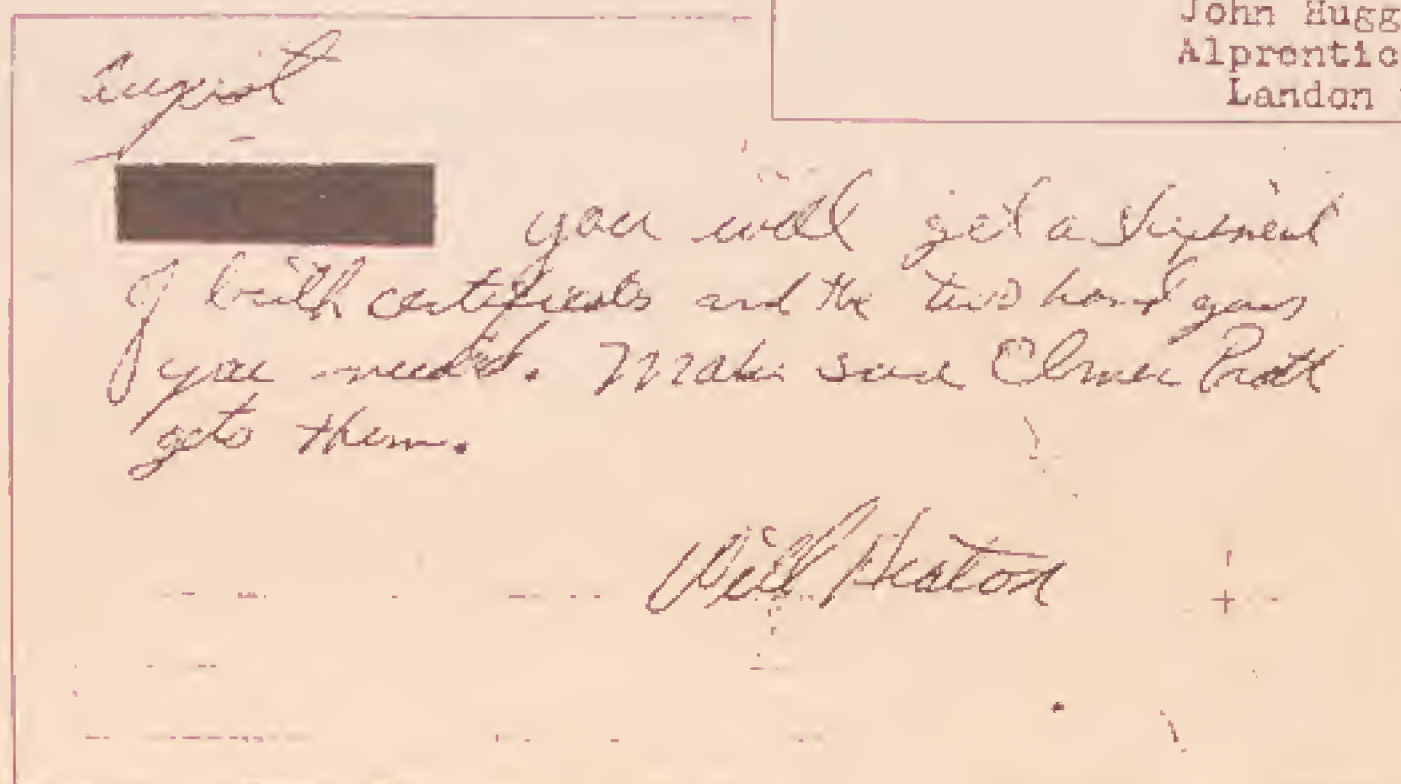 John Hugg
Alprentic
Landon
August
you will get a shipment
of birth certificates and the two hand guns
you needed. Make sure Elmer Pratt
gets them.
Will Heaton